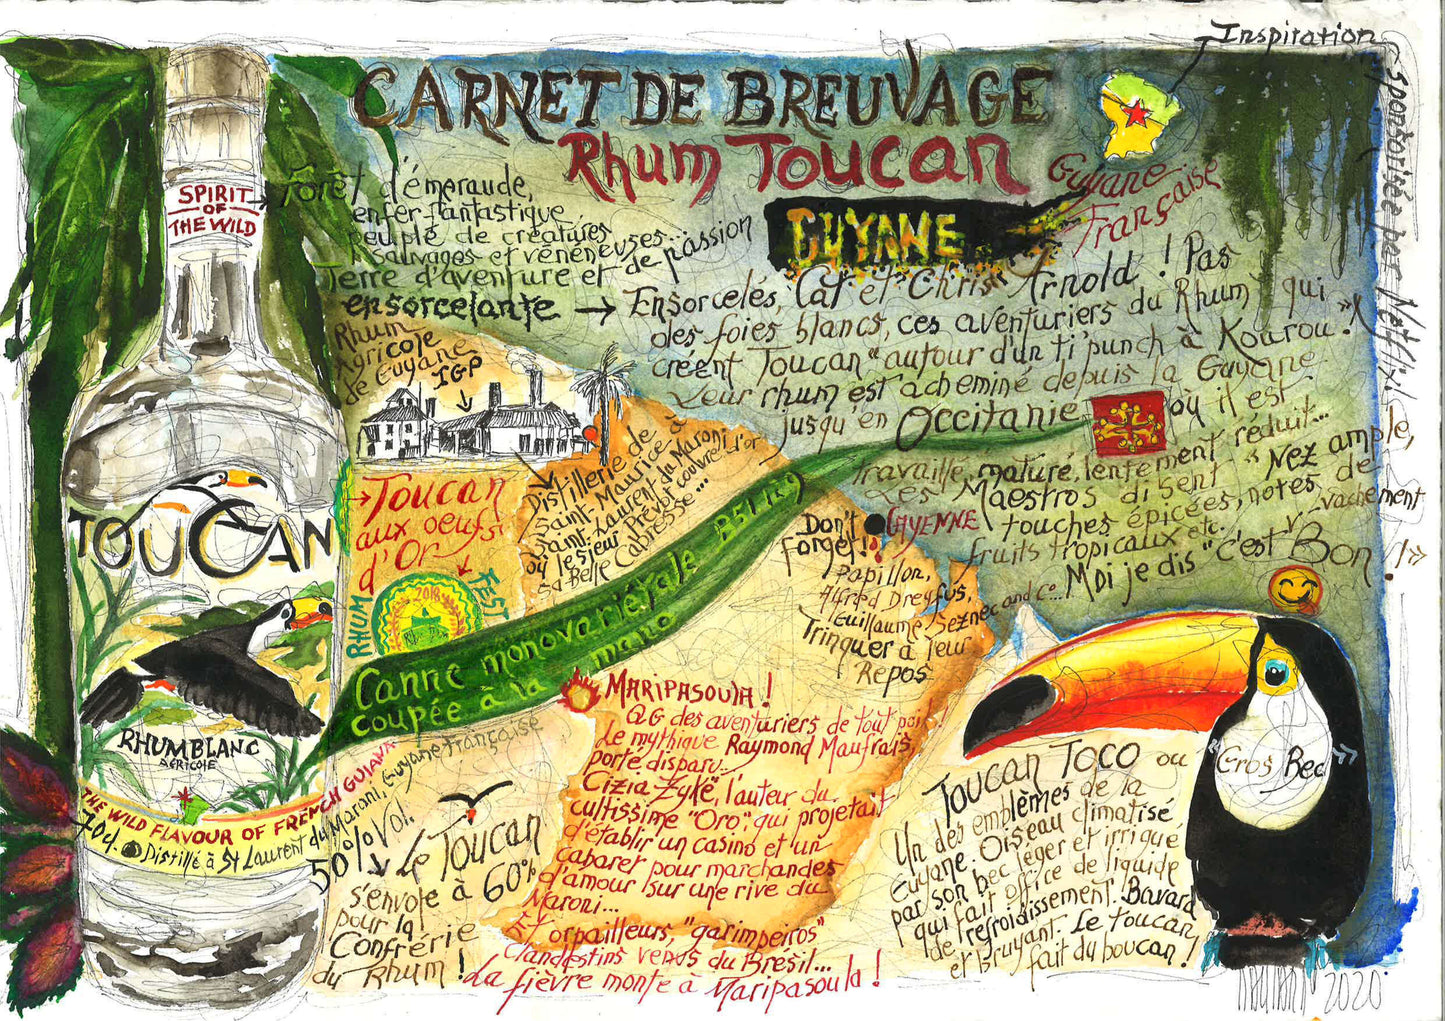 Inspiration
sponsorisée par
CARNET DE BREUVAGE
Rhum Toucan
Guyane
Française
GUYANE
SPIRIT
OF
THE WILD
Forêt d'émeraude,
enfer fantastique
peuplé de créatures
sauvages et vénéneuses...
Terre d'aventure et de passion
ensorcelante →
Ensorcelés, Cat et Chris Arnold ! Pas
des foies blancs, ces aventuriers du Rhum qui
créent "Toucan" autour d'un ti'punch à Kourou.
Leur rhum est acheminé depuis la Guyane
jusqu'en Occitanie
où il est
travaillé, maturé, lentement réduit...
Les Maestros disent "Nez ample,
touches épicées, notes de
fruits tropicaux etc.
Moi je dis "c'est vachement Bon !"
Rhum
Agricole
de Guyane
IGP
Distillerie de
Saint-Maurice à
Saint-Laurent du Maroni
où le sieur Prévot couvre d'or
sa Belle Cabresse...
Toucan
aux oeufs
d'Or
RHUM
FEST
2018
Canne monovariétale
coupée à la
mano
Don't
forget!
CAYENNE
Papillon,
Alfred Dreyfus,
Guillaume Seznec and c°...
Trinquer à leur
Repos
MARIPASOULA !
QG des aventuriers de tout poil !
Le mythique Raymond Maufrais,
porté disparu...
Cizia Zykë, l'auteur du
cultissime "Oro", qui projetait
d'établir un casino et un
cabaret pour marchandes
d'amour sur une rive du
Maroni...
Et orpailleurs, "garimpeiros"
Clandestins venus du Brésil...
La fièvre monte à Maripasoula !
TOUCAN
RHUM BLANC
AGRICOLE
THE WILD FLAVOUR OF FRENCH GUIANA
70cl.
Distillé à St Laurent du Maroni, Guyane Française
50% Vol.
Le Toucan
s'envole à 60%
pour la
Confrérie
du Rhum !
Toucan TOCO ou
"Gros Bec"
Un des emblèmes de la
Guyane. Oiseau climatisé
par son bec léger et irrigué
qui fait office de liquide
de refroidissement. Bavard
et Bruyant. Le toucan
fait du boucan !
2020